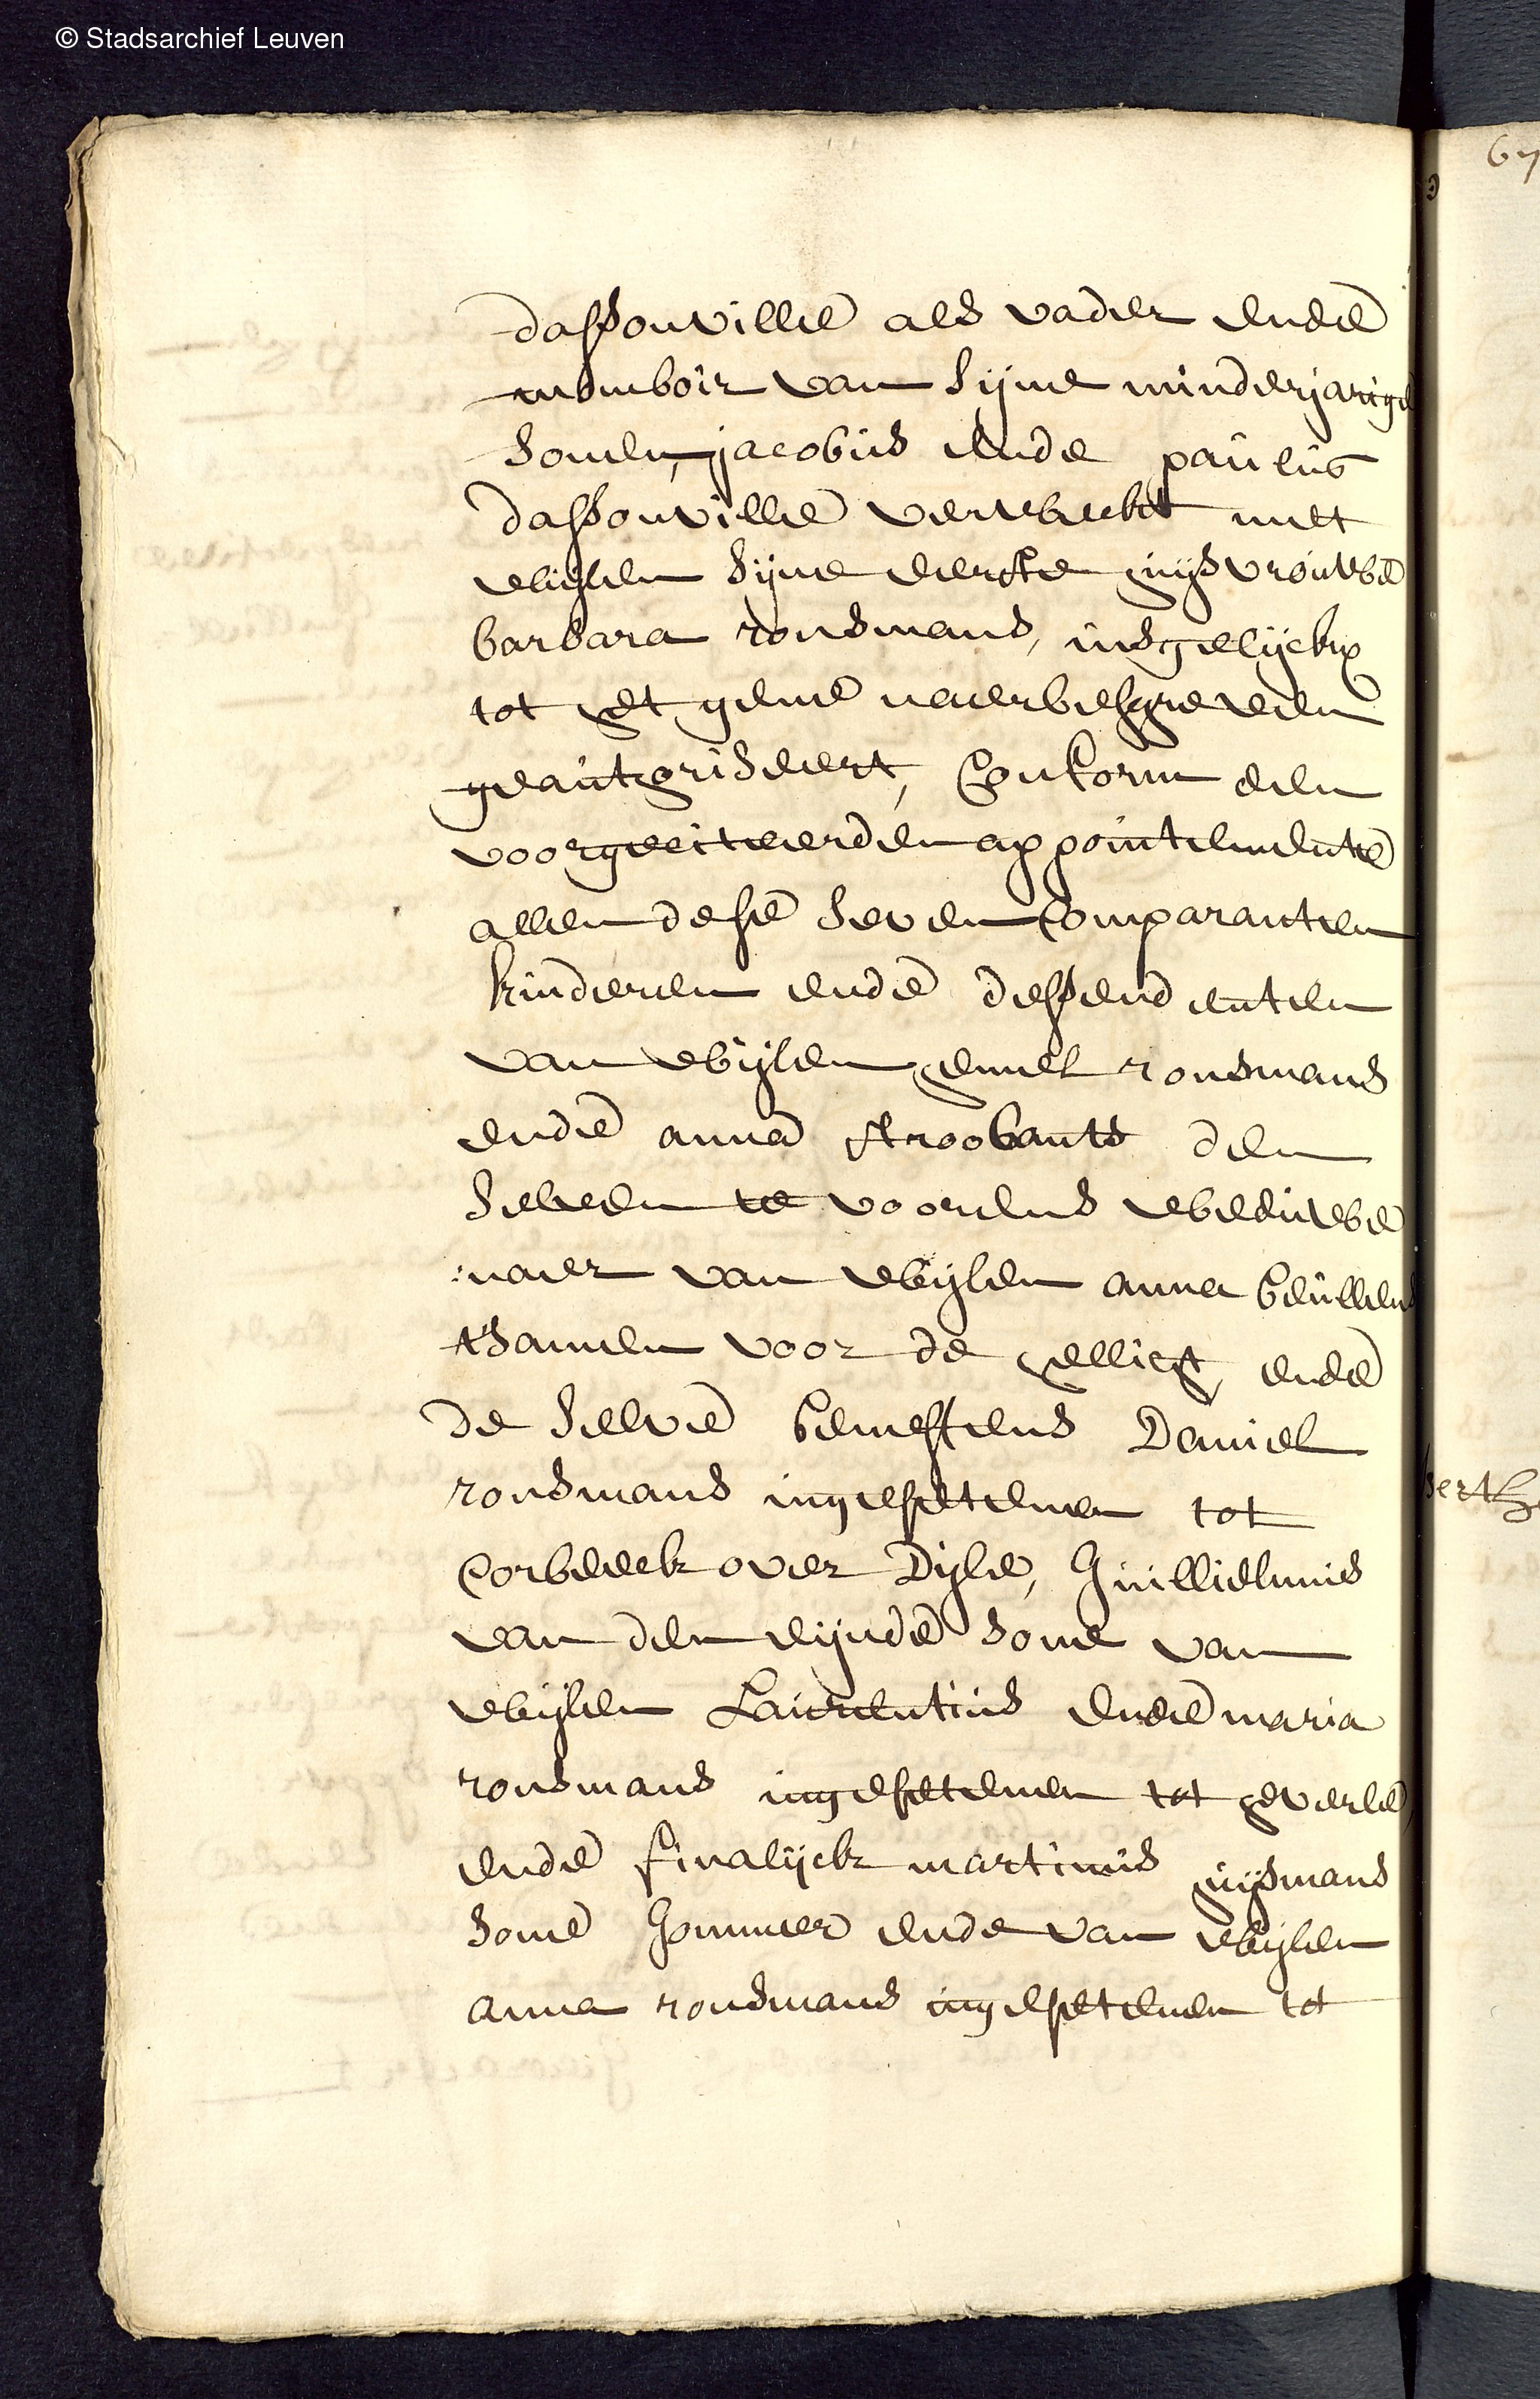 © Stadsarchief Leuven
67
dassonville als vader ende
momboir van sijne minderjarige
sonen, jacobus ende paulus
dassonville verweckt met
wijlen sijne eerste huijsvrouwe
barbara ronsmans, insgelijckx
tot het gene naerbeschreven
geauthoriseert, conform den
voorgeciteerden appointemente
allen dese seven comparanten
kinderen ende dessendenten
van wijlen henrick ronsmans
ende anna stroobants den
selven te voorens weduwe
:naer van wijlen anna beullens
tsamen voor de hellicht, ende
de selve beneffens Daniel
ronsmans ingesetenen tot
Corbeeck over Dijle, Guillielmus
van den eijnde sone van
wijlen Laurentius ende maria
ronsmans ingesetenen tot heverle
ende finalijck martinus huijsmans
sone Gommer ende van wijlen
anna ronsmans ingesetenen tot